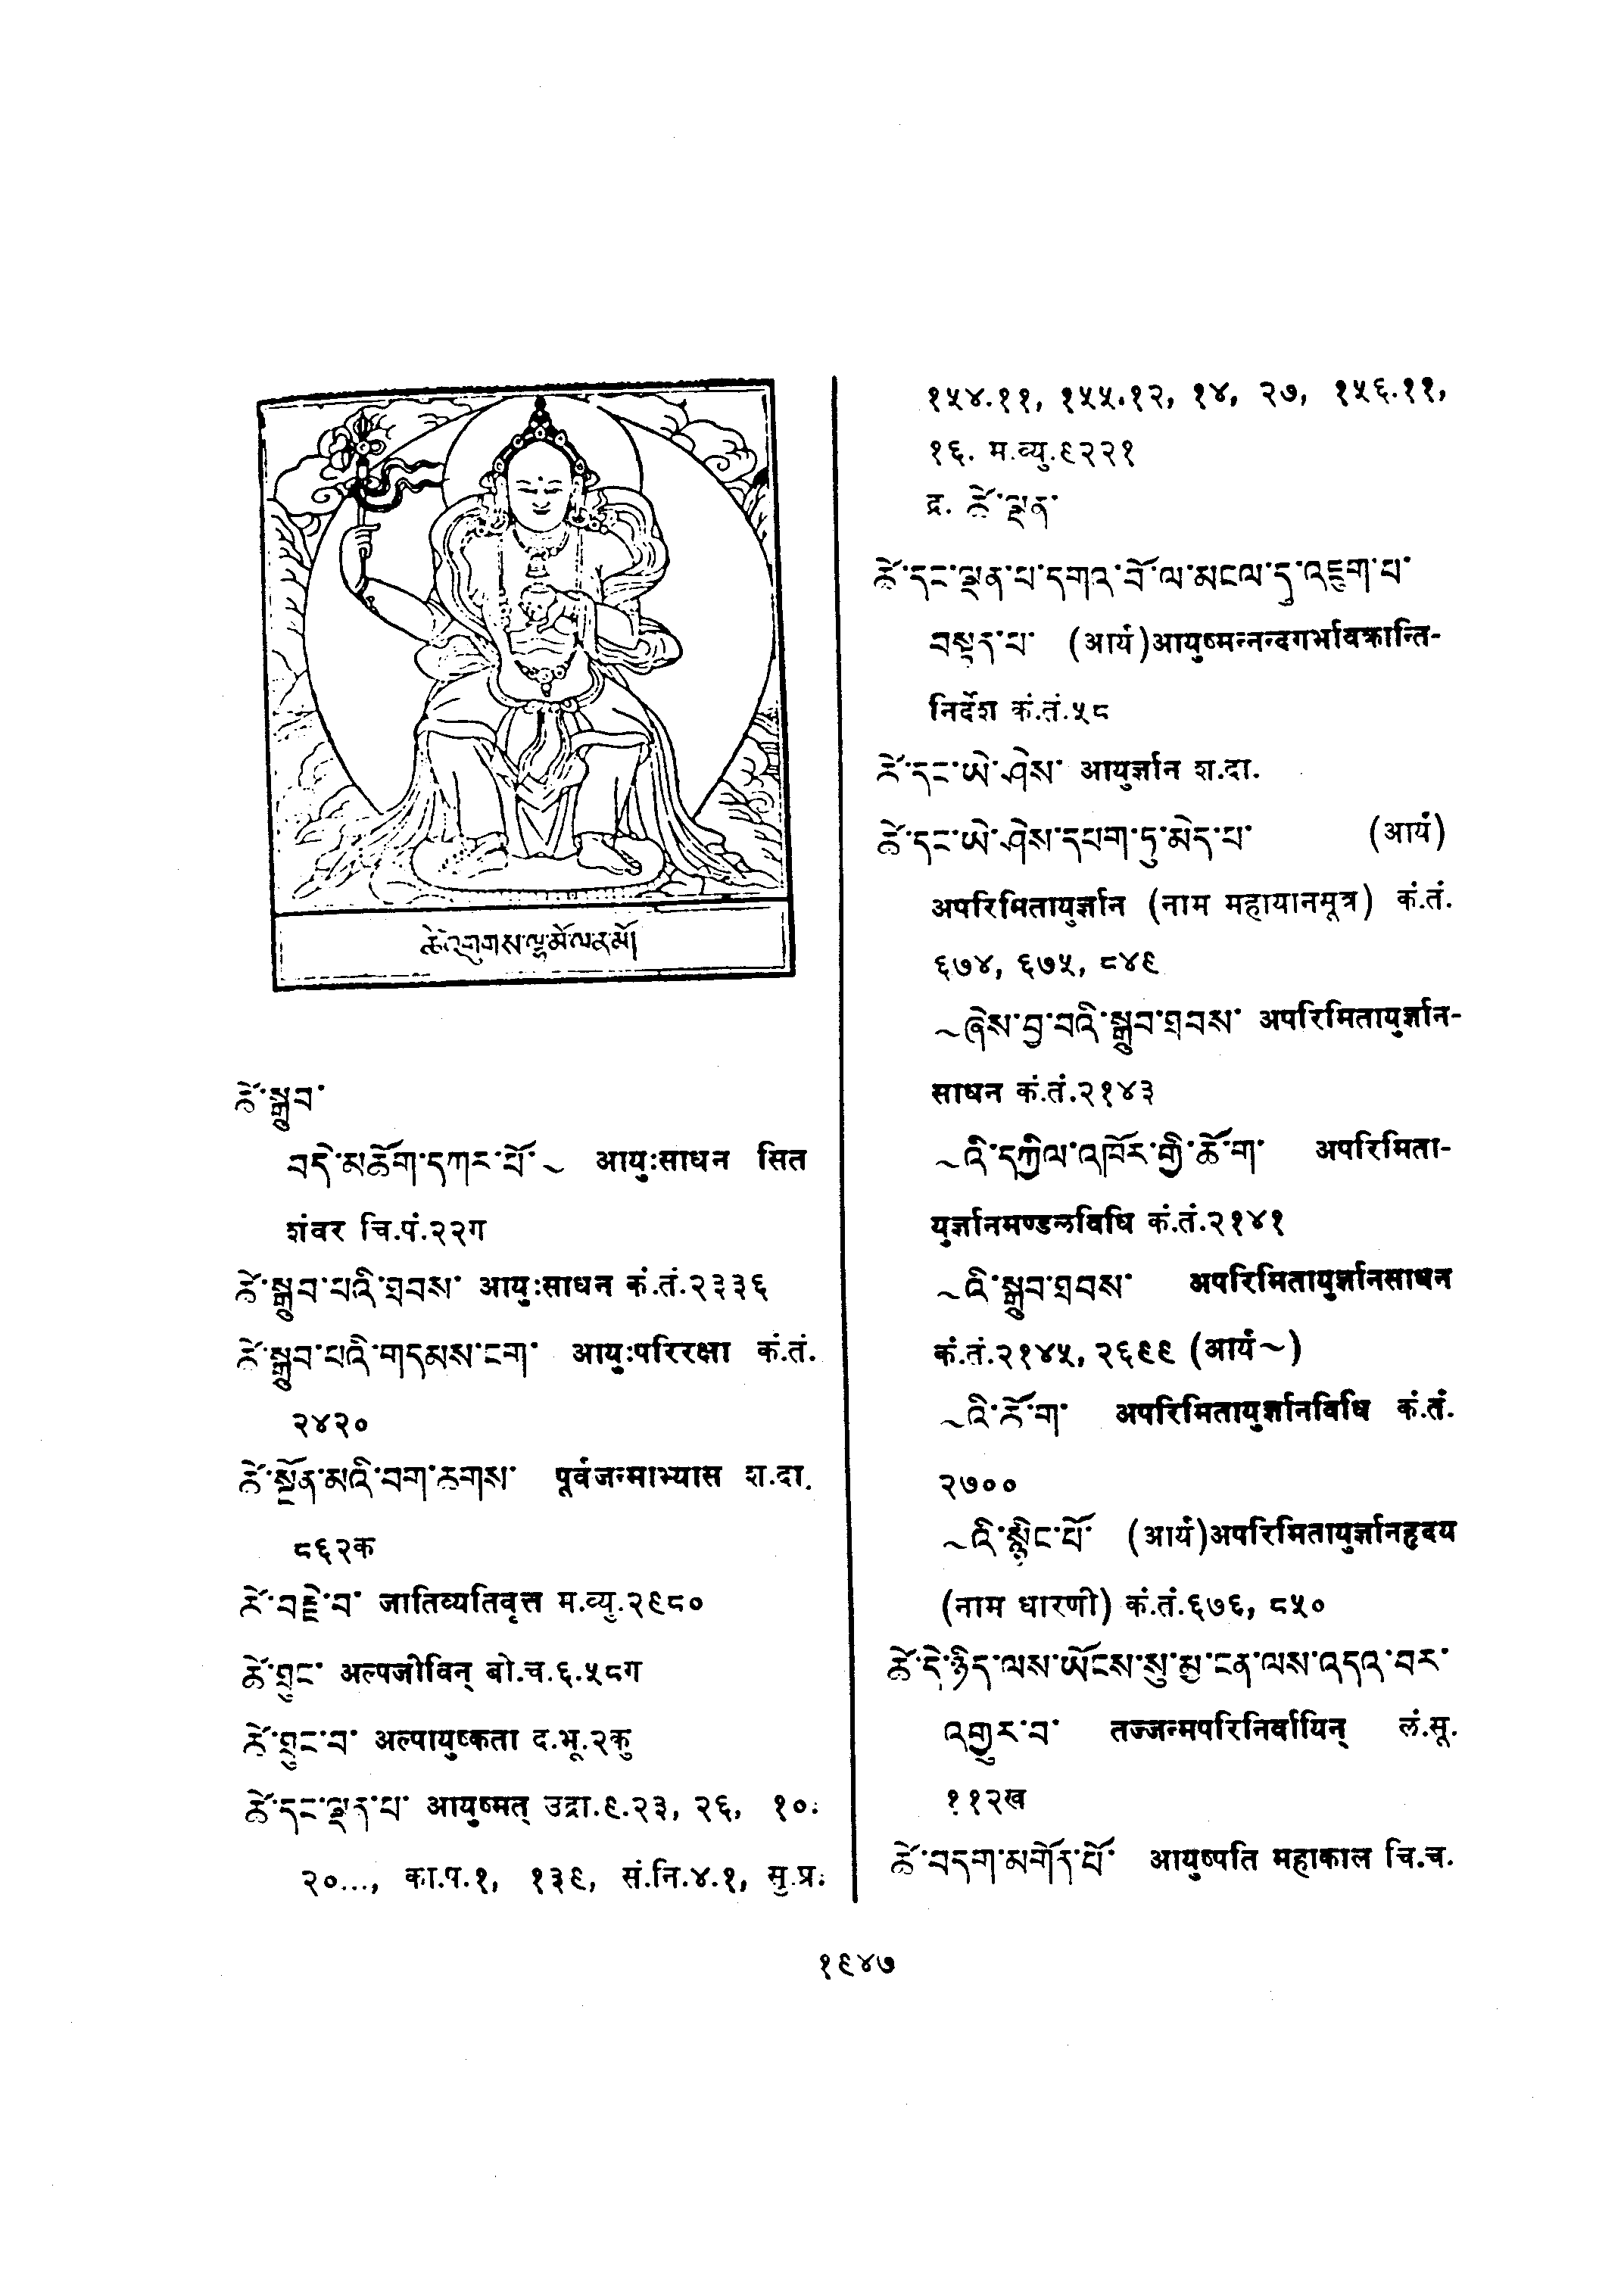 ཚེ་འགུགས་ལྷ་མོ་ལ་ན་མོ།
ཚེ་སྒྲུབ་
བདེ་མཆོག་དཀར་པོ་~ आयुःसाधन सित
शंवर चि.पं.२२ग
ཚེ་སྒྲུབ་པའི་ཐབས་ आयुःसाधन कं.तं.२३३६
ཚེ་སྒྲུབ་པའི་གདམས་ངག་ आयुःपरिरक्षा कं.तं.
२४२०
ཚེ་སྔོན་མའི་བག་ཆགས་ पूर्वजन्माभ्यास श.दा.
८६२क
ཚེ་བརྗེ་བ་ जातिव्यतिवृत्त म.व्यु.२९८०
ཚེ་ཐུང་ अल्पजीविन् बो.च.६.५८ग
ཚེ་ཐུང་བ་ अल्पायुष्कता द.भू.२कु
ཚེ་དང་ལྡན་པ་ आयुष्मत् उद्रा.९.२३, २६, १०.
२०..., का.प.१, १३९, सं.नि.४.१, सु.प्र.
१५४.११, १५५.१२, १४, २७, १५६.११,
१६. म.व्यु.९२२१
द्र. ཚེ་ལྡན་
ཚེ་དང་ལྡན་པ་དགའ་བོ་ལ་མངལ་དུ་འཇུག་པ་
བསྟན་པ་ (आर्य)आयुष्मन्नन्दगर्भावक्रान्ति-
निर्देश कं.तं.५८
ཚེ་དང་ཡེ་ཤེས་ आयुर्ज्ञान श.दा.
ཚེ་དང་ཡེ་ཤེས་དཔག་ཏུ་མེད་པ་ (आर्य)
अपरिमितायुर्ज्ञान (नाम महायानसूत्र) कं.तं.
६७४, ६७५, ८४९
~ཞེས་བྱ་བའི་སྒྲུབ་ཐབས་ अपरिमितायुर्ज्ञान-
साधन कं.तं.२१४३
~འི་དཀྱིལ་འཁོར་གྱི་ཆོ་ག་ अपरिमिता-
युर्ज्ञानमण्डलविधि कं.तं.२१४१
~འི་སྒྲུབ་ཐབས་ अपरिमितायुर्ज्ञानसाधन
कं.तं.२१४५, २६९९ (आर्य~)
~འི་ཆོ་ག་ अपरिमितायुर्ज्ञानविधि कं.तं.
२७००
~འི་སྙིང་པོ་ (आर्य)अपरिमितायुर्ज्ञानहृदय
(नाम धारणी) कं.तं.६७६, ८५०
ཚེ་དེ་ཉིད་ལས་ཡོངས་སུ་མྱ་ངན་ལས་འདའ་བར་
འགྱུར་བ་ तज्जन्मपरिनिर्वायिन् लं.सू.
११२ख
ཚེ་བདག་མགོན་པོ་ आयुष्पति महाकाल चि.च.
१९४७